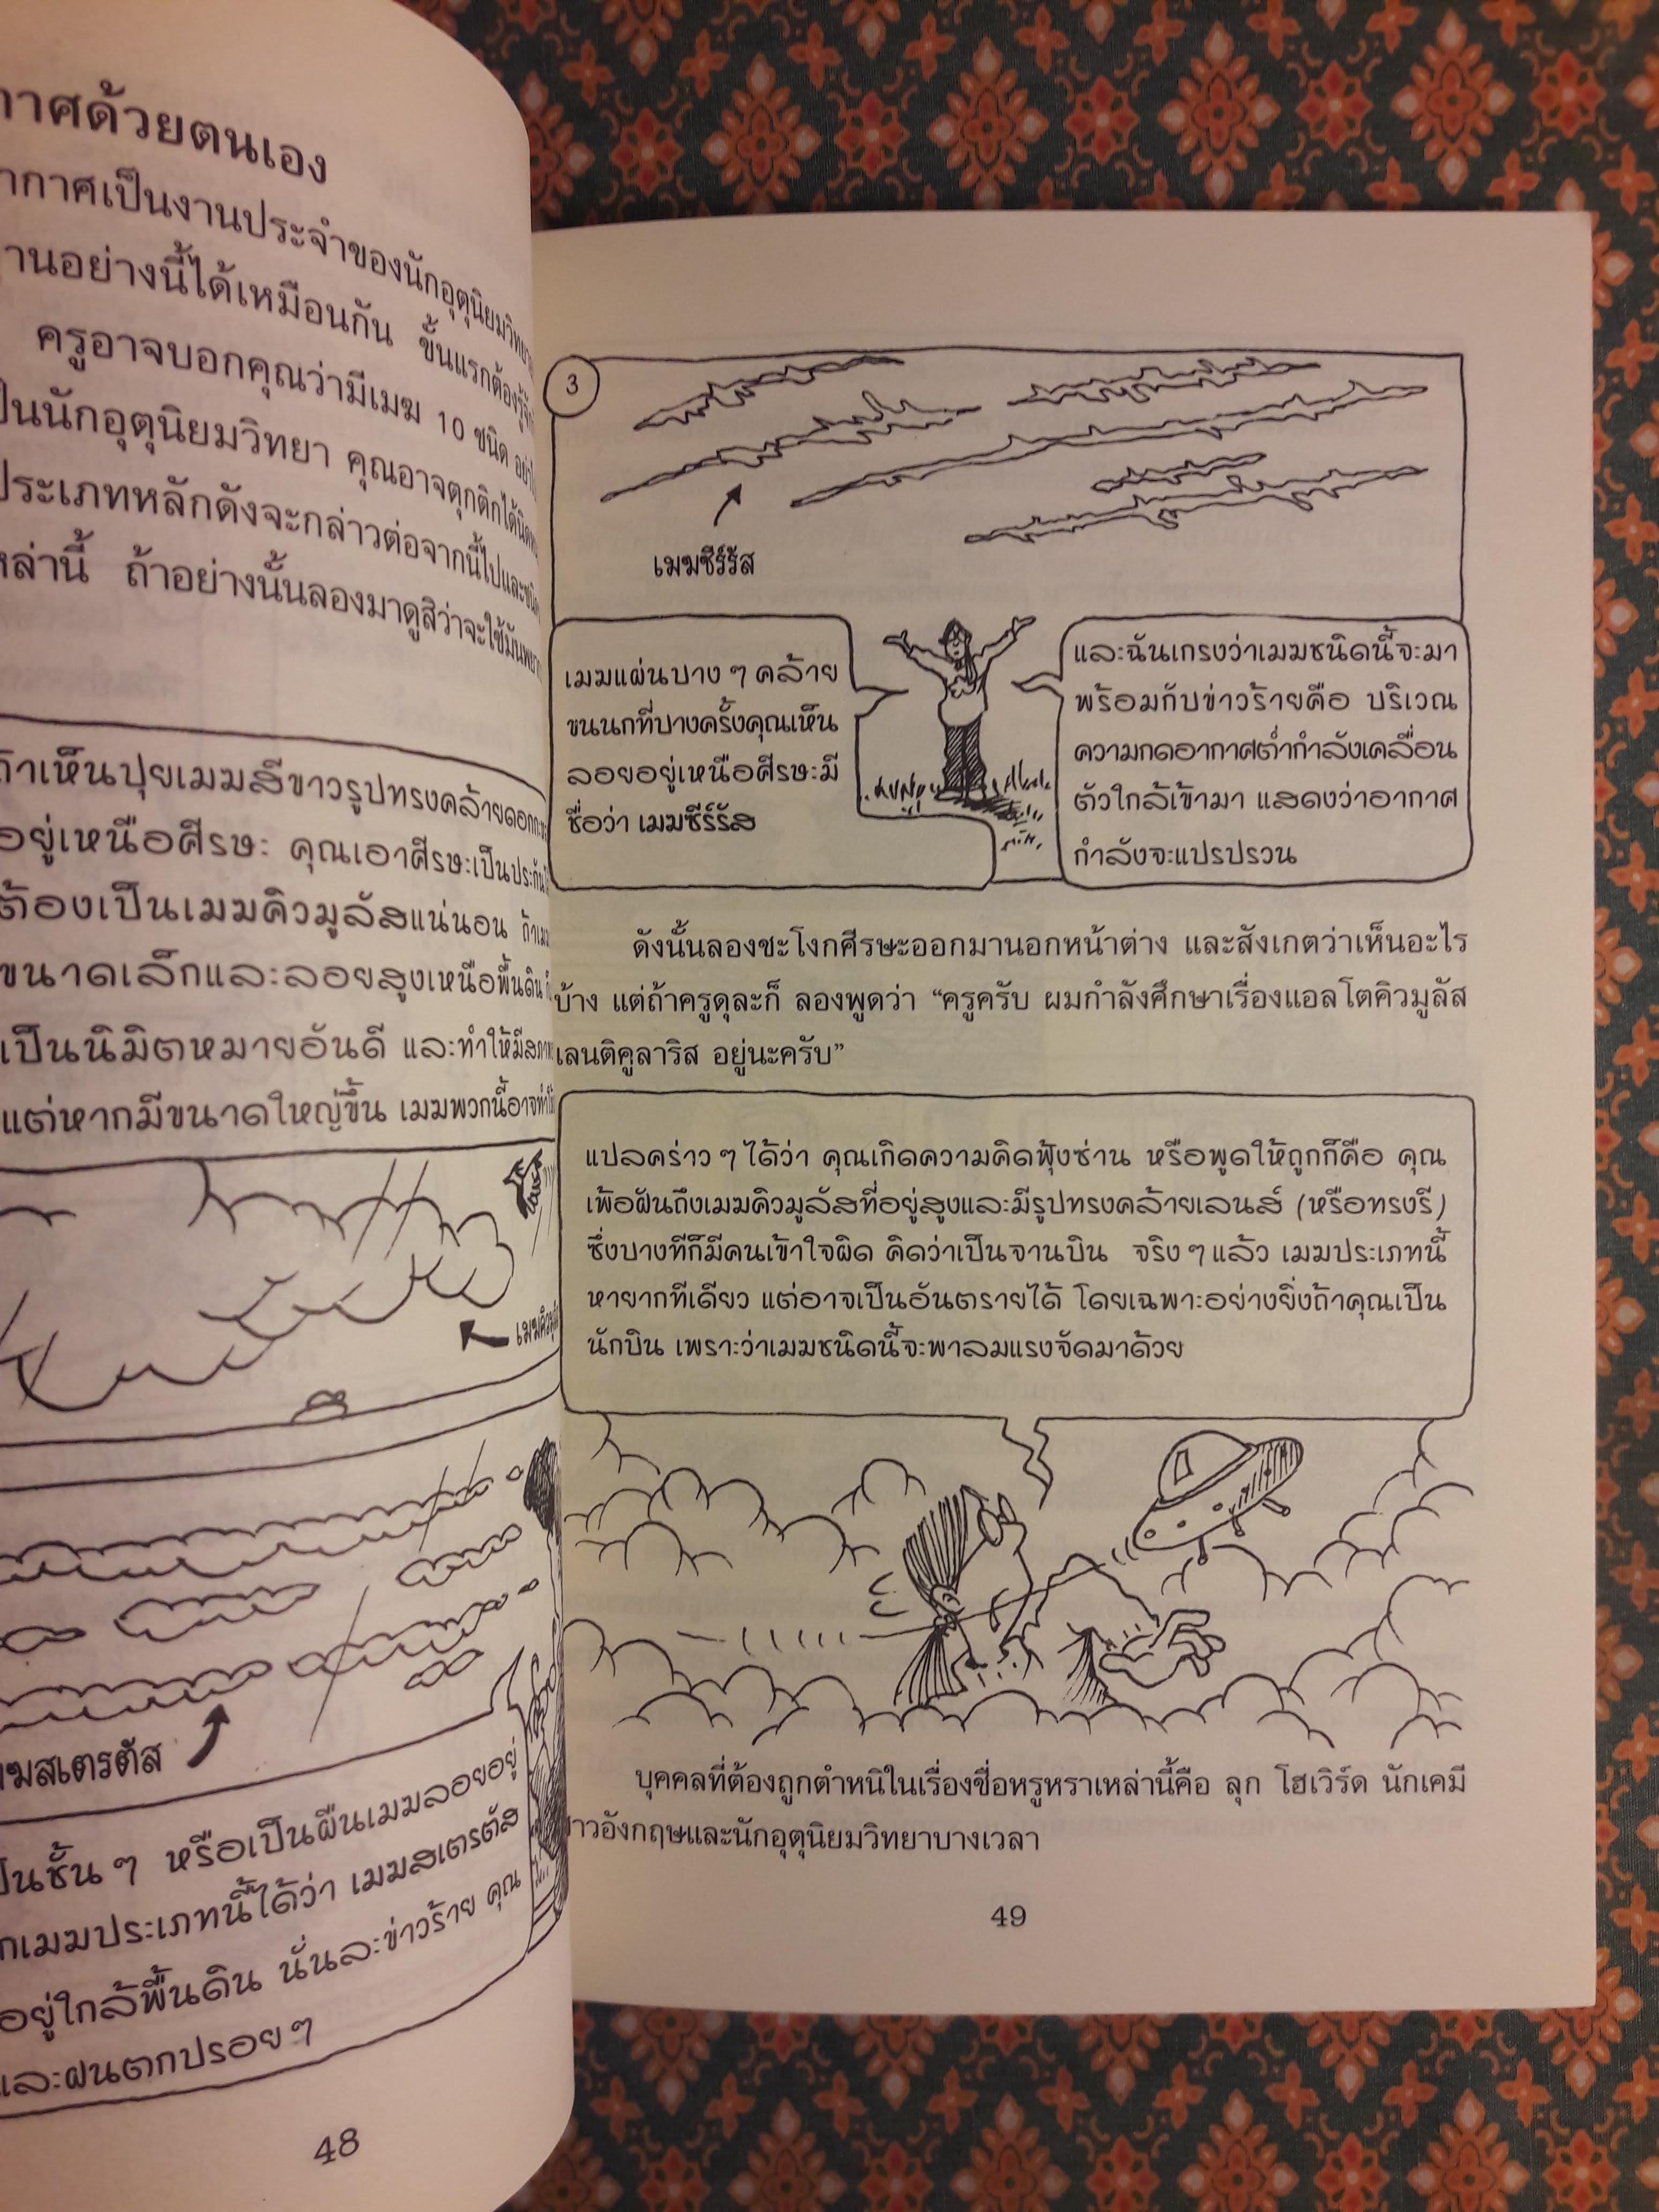 กาศด้วยตนเอง
ากาศเป็นงานประจำของนักอุตุนิยมวิทยา
านอย่างนี้ได้เหมือนกัน ขั้นแรกต้องรู้จัก
ครูอาจบอกคุณว่ามีเมฆ 10 ชนิด อย่า
ป็นนักอุตุนิยมวิทยา คุณอาจตุกติกได้นิด
ประเภทหลักดังจะกล่าวต่อจากนี้ไปและ
หล่านี้ ถ้าอย่างนั้นลองมาดูสิว่าจะใช้มัน
ถ้าเห็นปุยเมฆสีขาวรูปทรงคล้ายดอก
อยู่เหนือศีรษะ คุณเอาศีรษะเป็นประกัน
ต้องเป็นเมฆคิวมูลัสแน่นอน ถ้า
ขนาดเล็กและลอยสูงเหนือพื้นดิน
เป็นนิมิตหมายอันดี และทำให้มี
แต่หากมีขนาดใหญ่ขึ้น เมฆพวกนี้อาจ
เมฆคิว
ฆสเตรตัส
ป็นชั้น ๆ หรือเป็นผืนเมฆลอยอยู่
กเมฆประเภทนี้ได้ว่า เมฆสเตรตัส
อยู่ใกล้พื้นดิน นั่นละข่าวร้าย คุณ
และฝนตกปรอย ๆ
48
3
เมฆซีร์รัส
เมฆแผ่นบาง ๆ คล้าย
ขนนกที่บางครั้งคุณเห็น
ลอยอยู่เหนือศีรษะมี
ชื่อว่า เมฆซีร์รัส
และฉันเกรงว่าเมฆชนิดนี้จะมา
พร้อมกับข่าวร้ายคือ บริเวณ
ความกดอากาศต่ำกำลังเคลื่อน
ตัวใกล้เข้ามา แสดงว่าอากาศ
กำลังจะแปรปรวน
ดังนั้นลองชะโงกศีรษะออกมานอกหน้าต่าง และสังเกตว่าเห็นอะไร
บ้าง แต่ถ้าครูดุละก็ ลองพูดว่า “ครูครับ ผมกำลังศึกษาเรื่องแอลโตคิวมูลัส
เลนติคูลาริส อยู่นะครับ”
แปลคร่าว ๆ ได้ว่า คุณเกิดความคิดฟุ้งซ่าน หรือพูดให้ถูกก็คือ คุณ
เพ้อฝันถึงเมฆคิวมูลัสที่อยู่สูงและมีรูปทรงคล้ายเลนส์ (หรือทรงรี)
ซึ่งบางทีก็มีคนเข้าใจผิด คิดว่าเป็นจานบิน จริง ๆ แล้ว เมฆประเภทนี้
หายากทีเดียว แต่อาจเป็นอันตรายได้ โดยเฉพาะอย่างยิ่งถ้าคุณเป็น
นักบิน เพราะว่าเมฆชนิดนี้จะพาลมแรงจัดมาด้วย
บุคคลที่ต้องถูกตำหนิในเรื่องชื่อหรูหราเหล่านี้คือ ลุก โฮเวิร์ด นักเคมี
าวอังกฤษและนักอุตุนิยมวิทยาบางเวลา
49